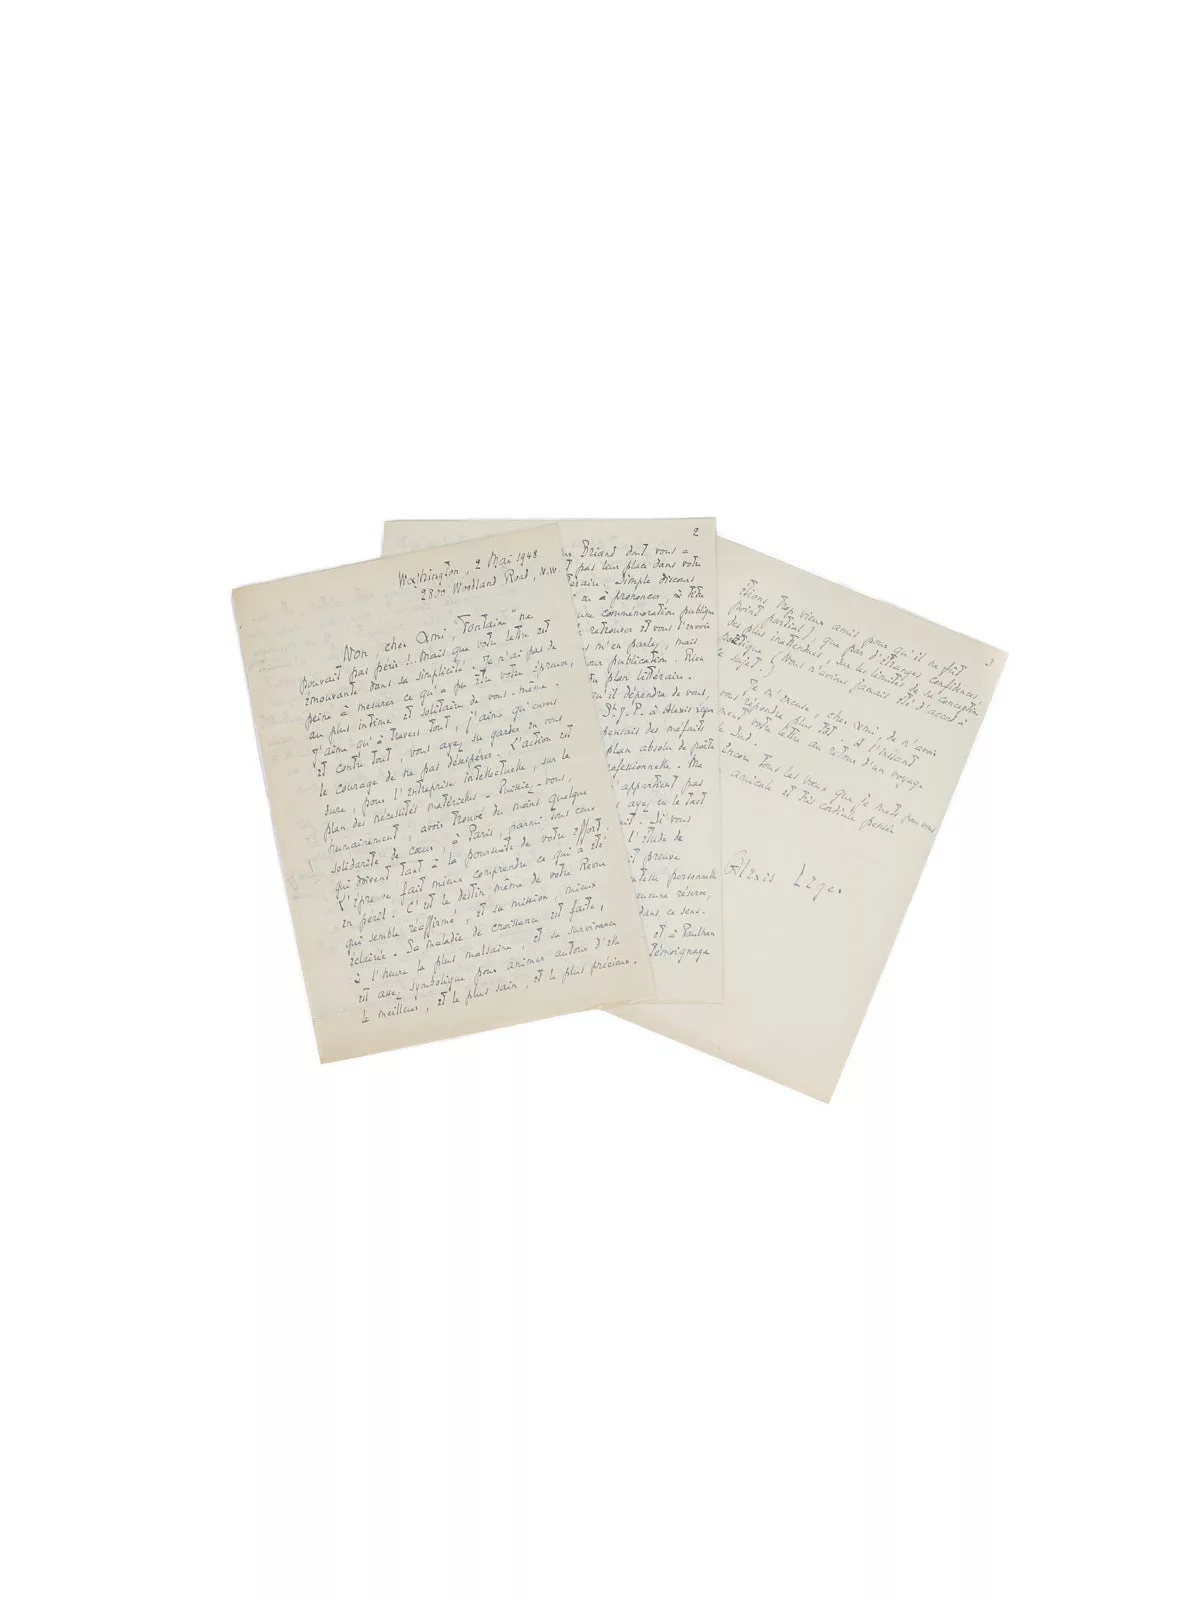 Washington, 2 Mai 1948
2800 Woodland Road, N.W.
Non cher Ami, "Fontaine" ne
pouvait pas périr !.. Mais que votre lettre est
émouvante dans sa simplicité. Je n'ai pas de
peine à mesurer ce qu'a pu être votre épreuve,
au plus intime et solitaire de vous-même.
J'aime qu'à travers tout, j'aime qu'envers
et contre tout, vous ayez su garder en vous
le courage de ne pas désespérer. L'action est
dure, pour l'entreprise intellectuelle, sur le
plan des nécessités matérielles. Puissiez-vous,
humainement, avoir trouvé du moins quelque
solidarité de cœur, à Paris, parmi tous ceux
qui doivent tant à la poursuite de votre effort.
L'épreuve fait mieux comprendre ce qui a été
en péril. C'est le destin même de votre Revue
qui semble réaffirmé, et sa mission, mieux
éclairée. Sa maladie de croissance est faite,
à l'heure la plus malsaine, et sa survivance
est assez symbolique pour animer autour d'elle
le meilleur, et le plus sain, et le plus précieux.
2
Briand dont vous a
pas leur place dans votre
Simple discours
eu à prononcer, à
une commémoration publique
retrouver et vous l'envoie
m'en parlez, mais
pour publication. Rien
plan littéraire.
qu'il dépendra de vous,
St J. P. à Alexis Leger
pensais des méfaits
plan absolu de poète
professionnelle. Ma
n'appartient pas
ayez eu le tact
Si vous
l'étude de
preuve
personnelle
aucune réserve,
dans ce sens.
et à Paulhan
témoignage
3
étions trop vieux amis pour qu'il ne fût
point partial), que par d'étranges confidences,
des plus inattendues, sur les limites de sa conception
poétique (Nous n'avions jamais été d'accord à
ce sujet.)
Je m'excuse, cher Ami, de n'avoir
vous répondre plus tôt. A l'instant
votre lettre au retour d'un voyage
Sud.
Encore tous les vœux que je mets pour vous
amicale et très cordiale pensée
Alexis Leger